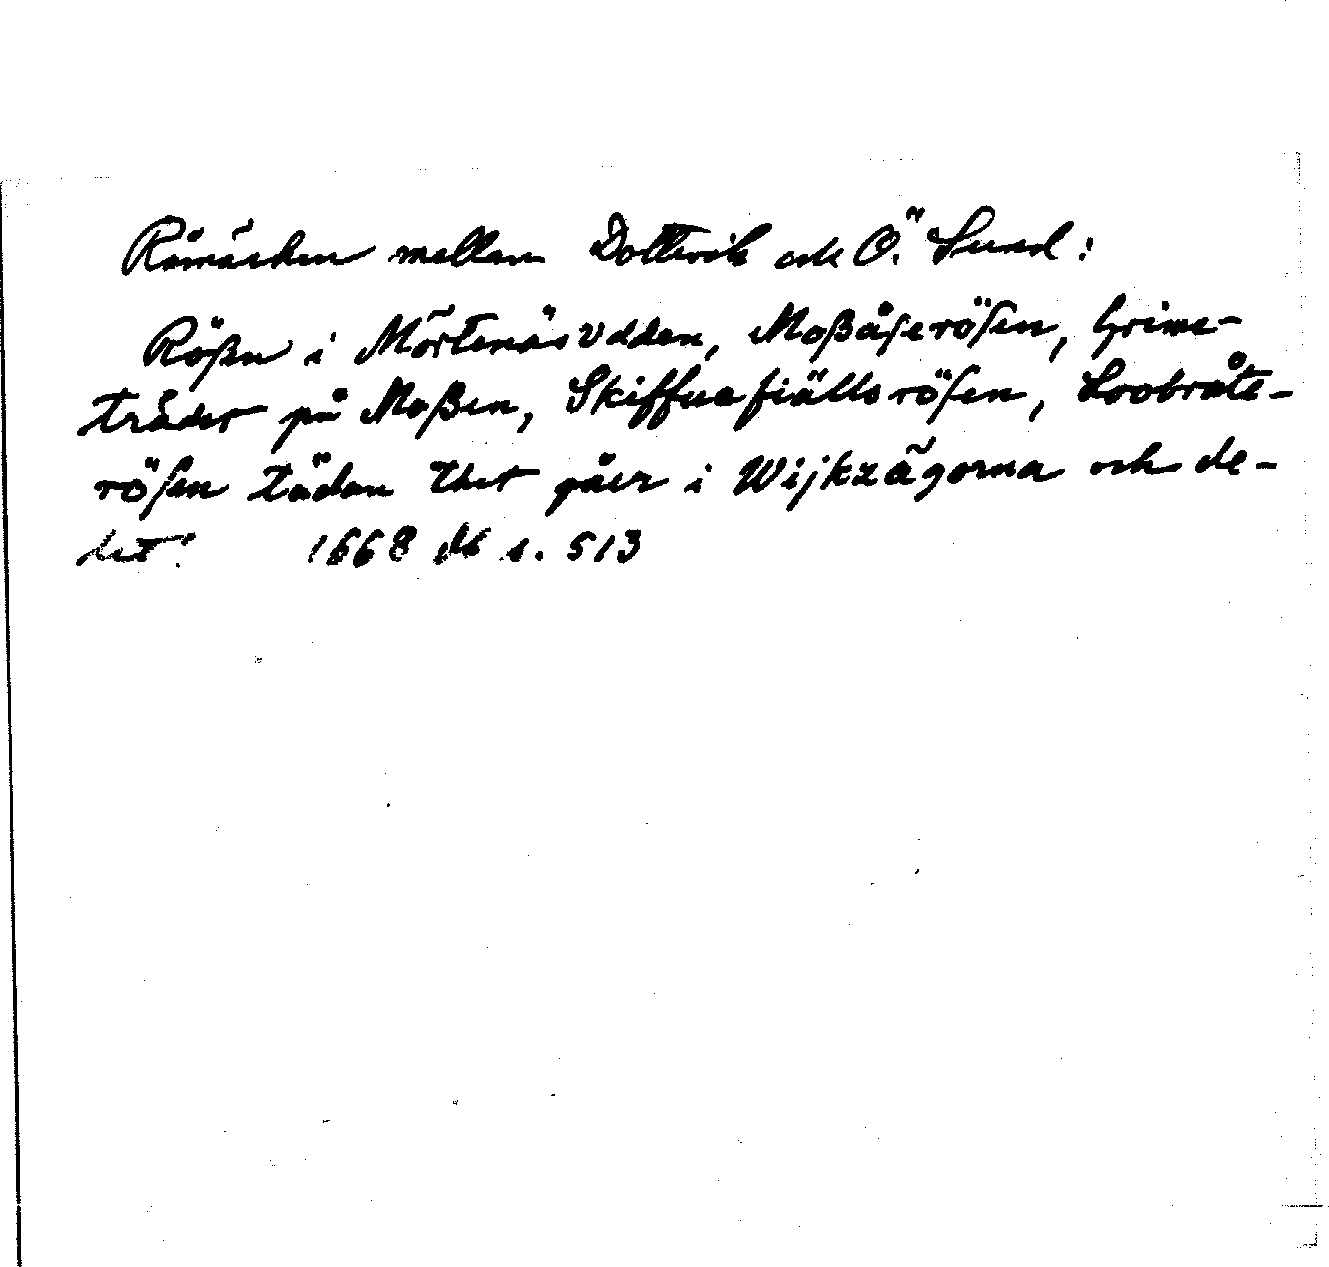 Råmärken mellan Dottevik och Ö. Sund:
Rößen i Mörtenäsvdden, Moßåserösen, Grime-
träder på Moßen, Skiffuefiälls rösen, Loobråte-
rösen tädan thet gåer i Wijkzägorna och de-
let! 1668 db s. 513